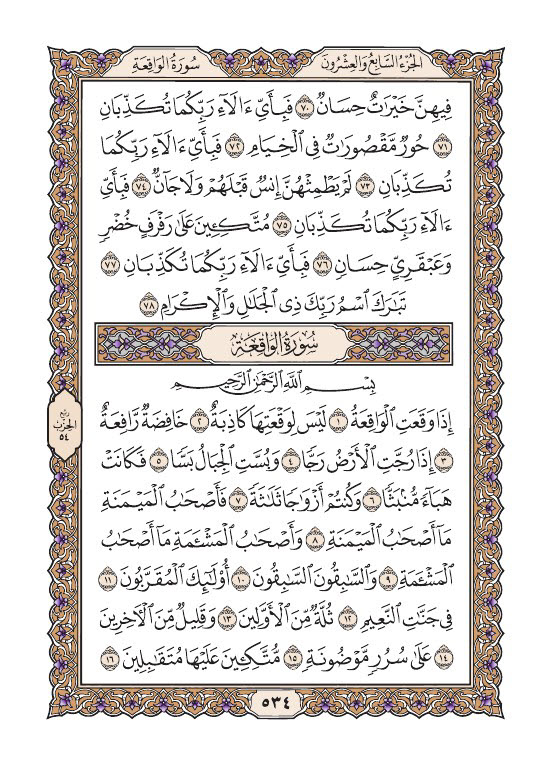 الجُزْءُ السَّابِعُ وَالعِشْرُونَ
سُورَةُ الوَاقِعَةِ
فِيهِنَّ خَيْرَٰتٌ حِسَانٌ ٧٠ فَبِأَيِّ ءَالَآءِ رَبِّكُمَا تُكَذِّبَانِ
٧١ حُورٌ مَّقْصُورَٰتٌ فِي ٱلْخِيَامِ ٧٢ فَبِأَيِّ ءَالَآءِ رَبِّكُمَا
تُكَذِّبَانِ ٧٣ لَمْ يَطْمِثْهُنَّ إِنسٌ قَبْلَهُمْ وَلَا جَآنٌّ ٧٤ فَبِأَيِّ
ءَالَآءِ رَبِّكُمَا تُكَذِّبَانِ ٧٥ مُتَّكِـِٔينَ عَلَىٰ رَفْرَفٍ خُضْرٍ
وَعَبْقَرِيٍّ حِسَانٍ ٧٦ فَبِأَيِّ ءَالَآءِ رَبِّكُمَا تُكَذِّبَانِ ٧٧
تَبَٰرَكَ ٱسْمُ رَبِّكَ ذِي ٱلْجَلَٰلِ وَٱلْإِكْرَامِ ٧٨
سُورَةُ الوَاقِعَةِ
بِسْمِ ٱللَّهِ ٱلرَّحْمَٰنِ ٱلرَّحِيمِ
إِذَا وَقَعَتِ ٱلْوَاقِعَةُ ١ لَيْسَ لِوَقْعَتِهَا كَاذِبَةٌ ٢ خَافِضَةٌ رَّافِعَةٌ
٣ إِذَا رُجَّتِ ٱلْأَرْضُ رَجًّا ٤ وَبُسَّتِ ٱلْجِبَالُ بَسًّا ٥ فَكَانَتْ
هَبَآءً مُّنۢبَثًّا ٦ وَكُنتُمْ أَزْوَٰجًا ثَلَٰثَةً ٧ فَأَصْحَٰبُ ٱلْمَيْمَنَةِ
مَآ أَصْحَٰبُ ٱلْمَيْمَنَةِ ٨ وَأَصْحَٰبُ ٱلْمَشْـَٔمَةِ مَآ أَصْحَٰبُ
ٱلْمَشْـَٔمَةِ ٩ وَٱلسَّٰبِقُونَ ٱلسَّٰبِقُونَ ١٠ أُو۟لَٰٓئِكَ ٱلْمُقَرَّبُونَ ١١
فِي جَنَّٰتِ ٱلنَّعِيمِ ١٢ ثُلَّةٌ مِّنَ ٱلْأَوَّلِينَ ١٣ وَقَلِيلٌ مِّنَ ٱلْءَاخِرِينَ
١٤ عَلَىٰ سُرُرٍ مَّوْضُونَةٍ ١٥ مُّتَّكِـِٔينَ عَلَيْهَا مُتَقَٰبِلِينَ ١٦
ربع
الحزب
٥٤
٥٣٤